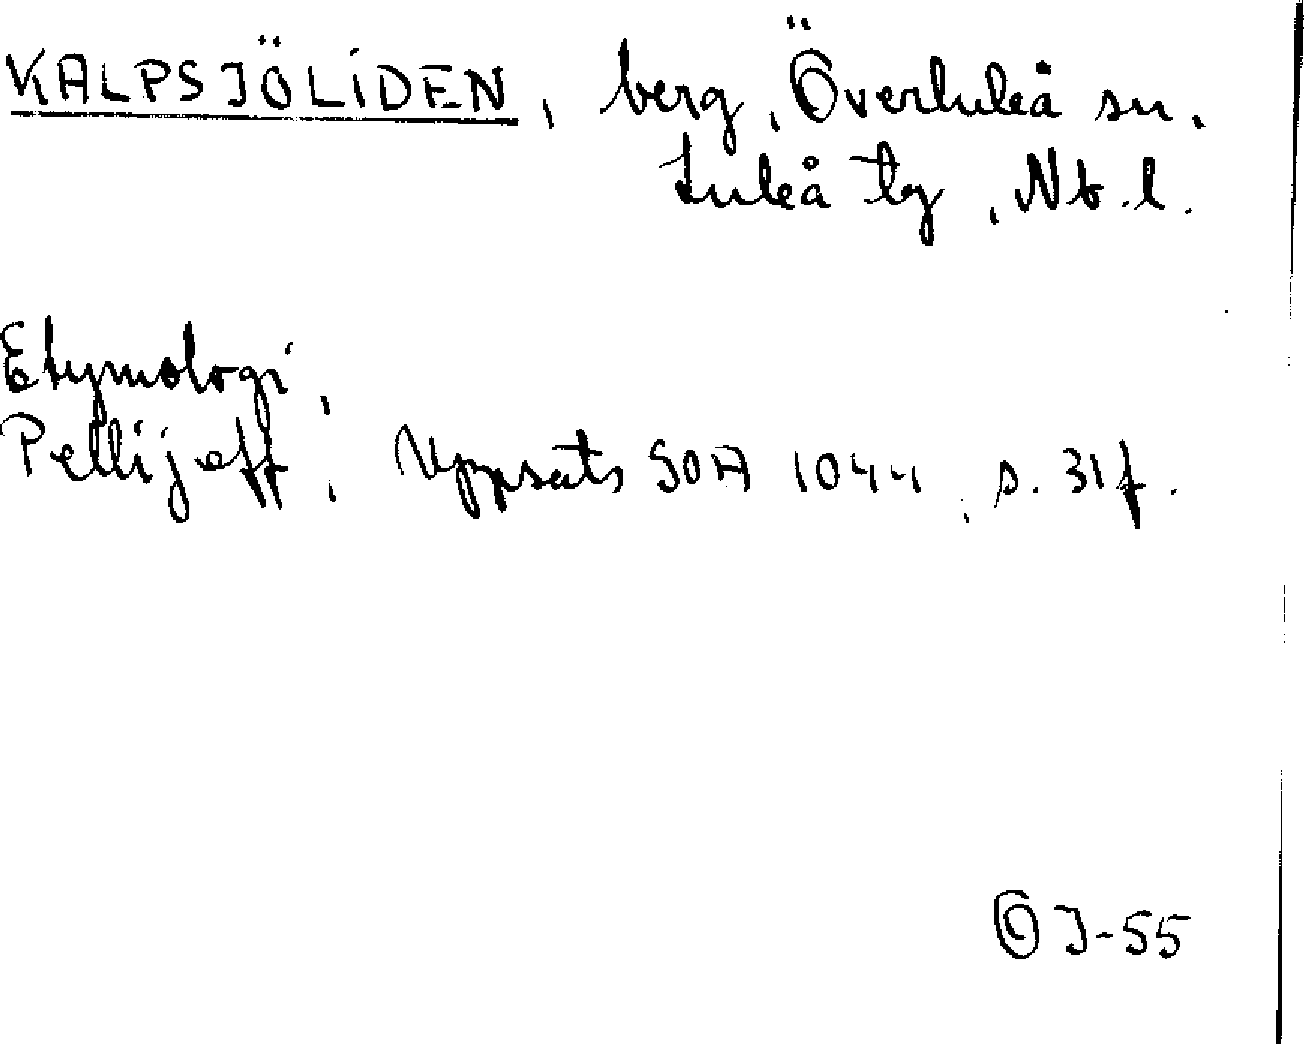 KALPSJÖLIDEN, berg, Överluleå sn.
Luleå tg, Nb.l.
Etymologi,
Pellijeff, Uppsats SOA 1044, s. 31f.
OJ-55